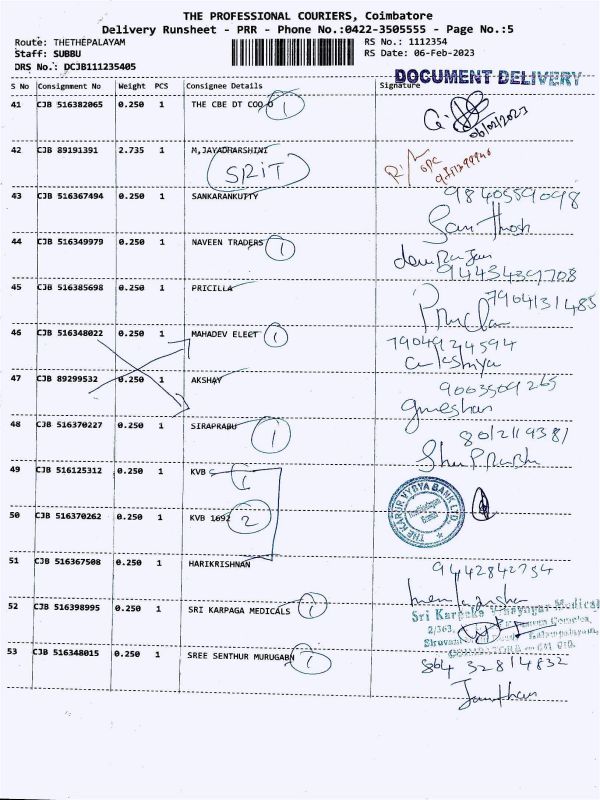 THE PROFESSIONAL COURIERS, Coimbatore
Delivery Runsheet - PRR - Phone No.:0422-3505555 - Page No.:5
Route: THETHEPALAYAM RS No.: 1112354
Staff: SUBBU RS Date: 06-Feb-2023
DRS No.: DCJB111235405
DOCUMENT DELIVERY
S No Consignment No Weight PCS Consignee Details Signature
41 CJB 516382065 0.250 1 THE CBE DT COO 1
06/02/2023
42 CJB 89191391 2.735 1 M,JAYADHARSHINI
SRIT
43 CJB 516367494 0.250 1 SANKARANKUTTY 9840559098
Santhosh
44 CJB 516349979 0.250 1 NAVEEN TRADERS 1
9443439708
45 CJB 516385698 0.250 1 PRICILLA 7904131485
46 CJB 516348022 0.250 1 MAHADEV ELECT 1 7904924594
47 CJB 89299532 0.250 1 AKSHAY 9003509265
48 CJB 516370227 0.250 1 SIRAPRABU 1
49 CJB 516125312 0.250 1 KVB 1
THE KARUR VYSYA BANK LTD.
50 CJB 516370262 0.250 1 KVB 1692 2
51 CJB 516367508 0.250 1 HARIKRISHNAN 9442842754
52 CJB 516398995 0.250 1 SRI KARPAGA MEDICALS 1
Sri Karpaka Vinayagar Medical
2/363,
53 CJB 516348015 0.250 1 SREE SENTHUR MURUGABN 1 864 32814832